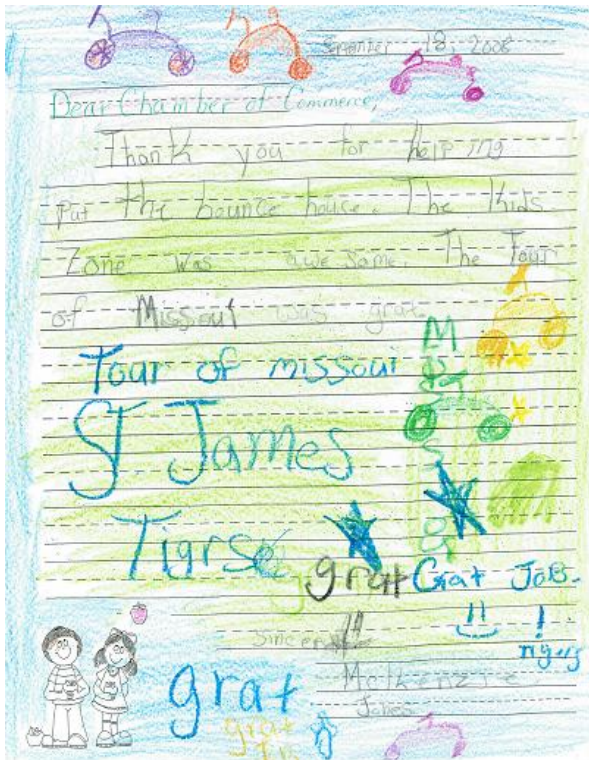 September 18, 2008
Dear Chamber of Commerce,
Thank you for helping
put the bounce house. The Kids
Zone was awe some. The Tour
of Missoui was grat
Tour of missoui
M
St James
Tigrse
grat Grat JoB.
!!
!
Sincer
grat
Jones
grat